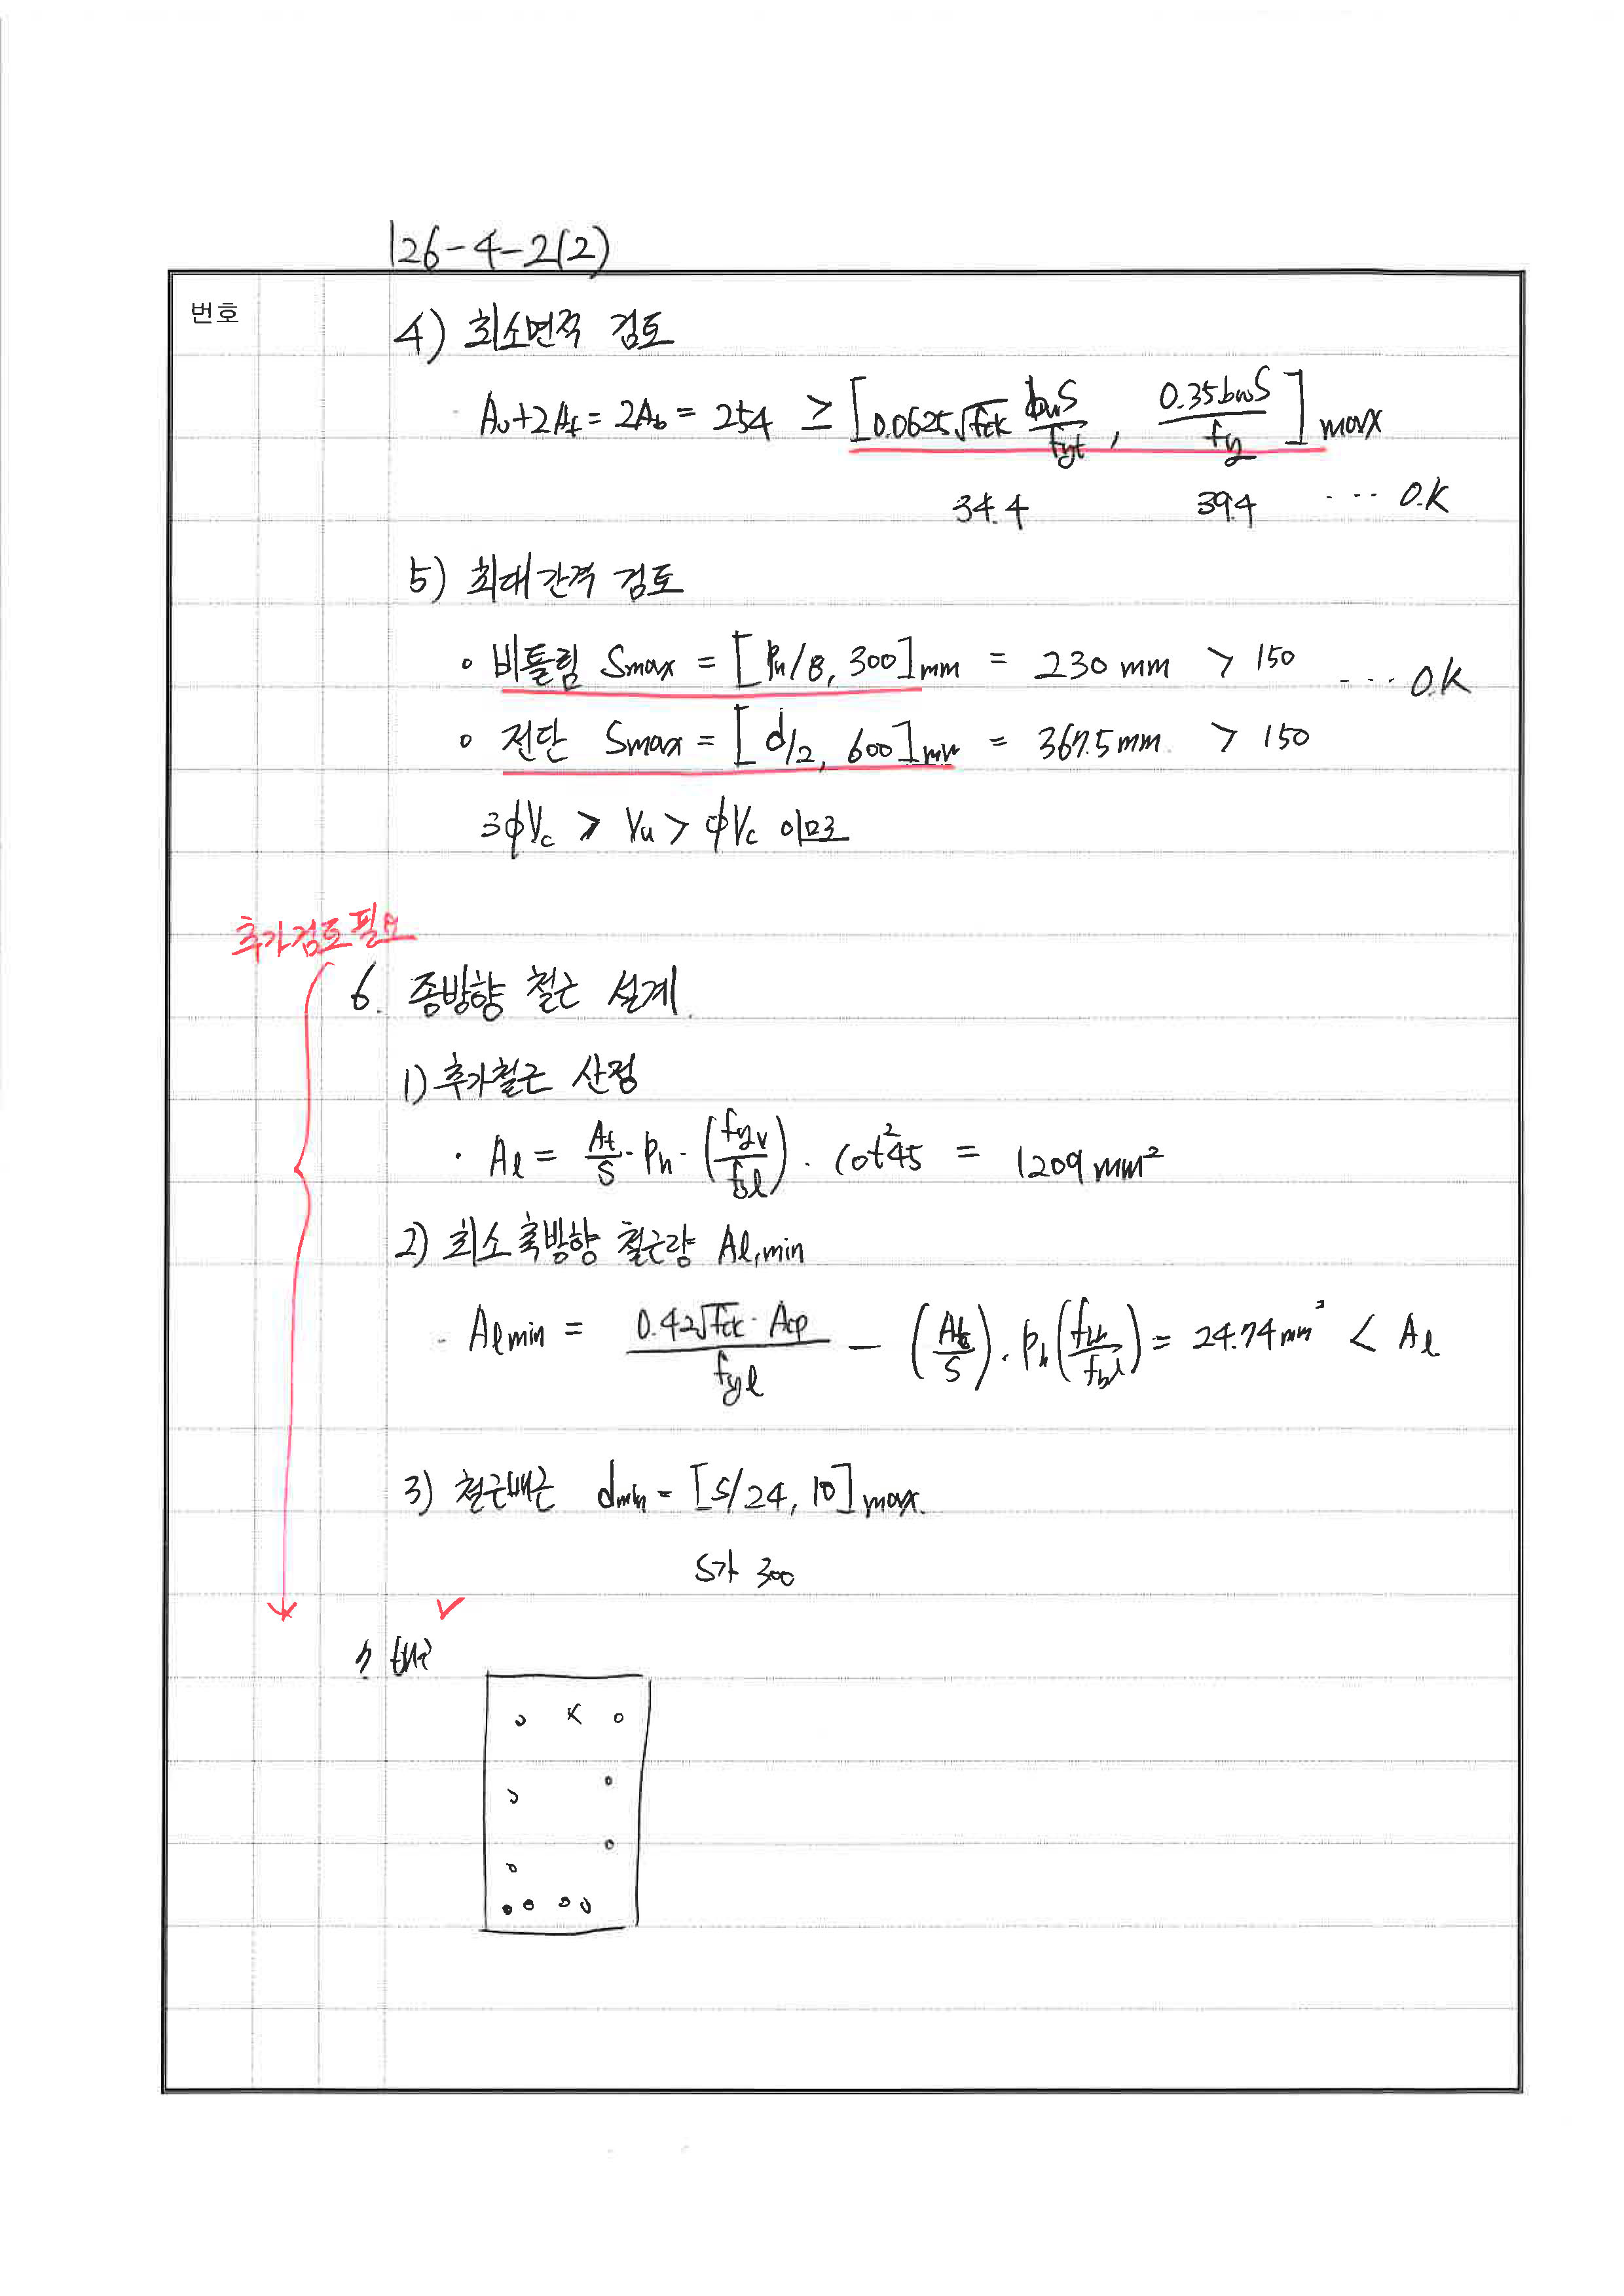 126-4-2(2)
번호
4) 최소면적 검토
· Av+2At = 2Ab = 254 ≥ [0.0625√fck bwS/fyt, 0.35bwS/fy]max
34.4 39.4 ··· O.K
5) 최대간격 검토
∘ 비틀림 Smax = [Ph/8, 300]mm = 230 mm > 150 ··· O.K
∘ 전단 Smax = [d/2, 600]mm = 367.5mm > 150
3φVc > Vu > φVc 이므로
추가검토필요
6. 종방향 철근 설계.
1) 추가철근 산정
· Al = At/S · Ph · (fyv/fyl) · cot²45 = 1209 mm²
2) 최소 축방향 철근량 Al,min
· Almin = 0.42√fck · Acp / fyl − (At/S) · Ph (fyv/fyl) = 24.74mm² < Al
3) 철근배근 dmin = [S/24, 10]max.
S가 300